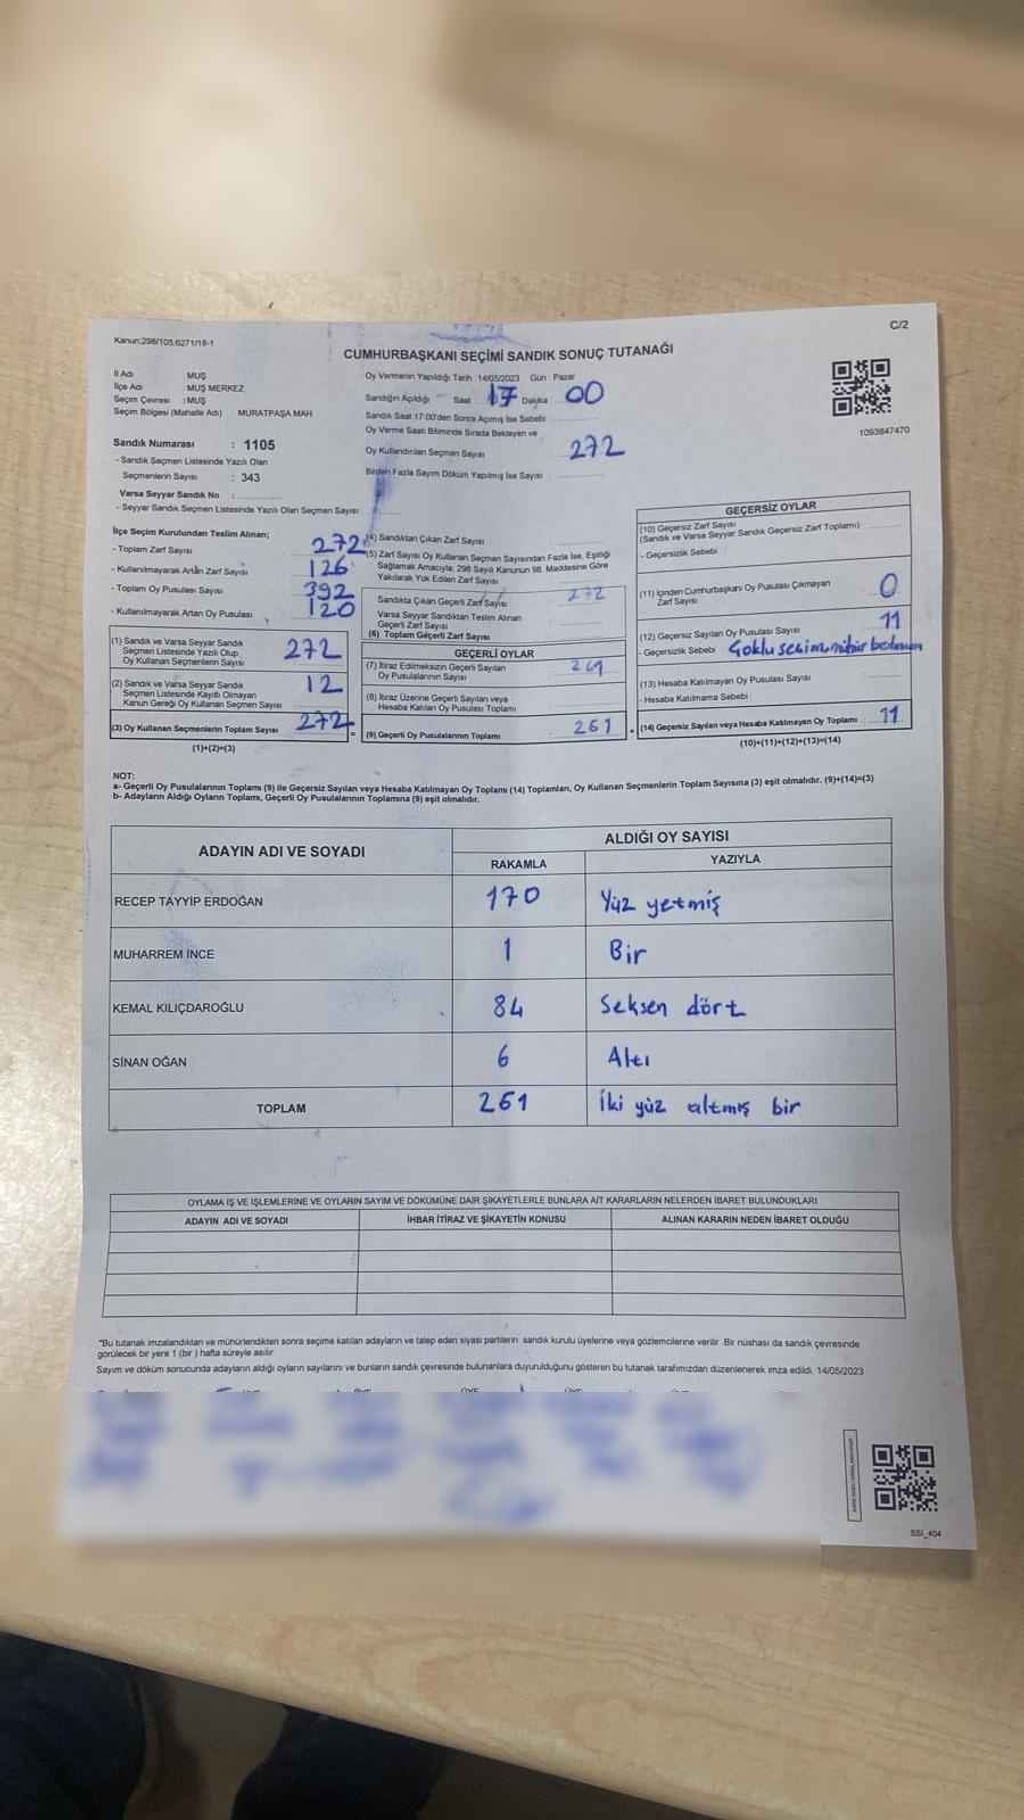 C/2
Kanun:298/105,6271/18-1
CUMHURBAŞKANI SEÇİMİ SANDIK SONUÇ TUTANAĞI
İl Adı : MUŞ
İlçe Adı : MUŞ MERKEZ
Seçim Çevresi : MUŞ
Seçim Bölgesi (Mahalle Adı) MURATPAŞA MAH
Sandık Numarası : 1105
- Sandık Seçmen Listesinde Yazılı Olan
Seçmenlerin Sayısı : 343
Varsa Seyyar Sandık No :
- Seyyar Sandık Seçmen Listesinde Yazılı Olan Seçmen Sayısı
Oy Vermenin Yapıldığı Tarih :14/05/2023 Gün : Pazar
Sandığın Açıldığı Saat 17 Dakika 00
Sandık Saat 17:00'den Sonra Açılmış İse Sebebi
Oy Verme Saati Bitiminde Sırada Bekleyen ve
Oy Kullandırılan Seçmen Sayısı 272
Birden Fazla Sayım Döküm Yapılmış İse Sayısı
1093847470
İlçe Seçim Kurulundan Teslim Alınan;
- Toplam Zarf Sayısı 272
- Kullanılmayarak Artan Zarf Sayısı 126
- Toplam Oy Pusulası Sayısı 392
- Kullanılmayarak Artan Oy Pusulası 120
(1) Sandık ve Varsa Seyyar Sandık
Seçmen Listesinde Yazılı Olup
Oy Kullanan Seçmenlerin Sayısı 272
(2) Sandık ve Varsa Seyyar Sandık
Seçmen Listesinde Kayıtlı Olmayan
Kanun Gereği Oy Kullanan Seçmen Sayısı 12
(3) Oy Kullanan Seçmenlerin Toplam Sayısı 272
(1)+(2)=(3)
(4) Sandıktan Çıkan Zarf Sayısı
(5) Zarf Sayısı Oy Kullanan Seçmen Sayısından Fazla İse, Eşitliği
Sağlamak Amacıyla; 298 Sayılı Kanunun 98. Maddesine Göre
Yakılarak Yok Edilen Zarf Sayısı
Sandıkta Çıkan Geçerli Zarf Sayısı 272
Varsa Seyyar Sandıktan Teslim Alınan
Geçerli Zarf Sayısı
(6) Toplam Geçerli Zarf Sayısı
GEÇERLİ OYLAR
(7) İtiraz Edilmeksizin Geçerli Sayılan
Oy Pusulalarının Sayısı 261
(8) İtiraz Üzerine Geçerli Sayılan veya
Hesaba Katılan Oy Pusulası Toplamı
(9) Geçerli Oy Pusulalarının Toplamı 261
GEÇERSİZ OYLAR
(10) Geçersiz Zarf Sayısı
(Sandık ve Varsa Seyyar Sandık Geçersiz Zarf Toplamı)
- Geçersizlik Sebebi
(11) İçinden Cumhurbaşkanı Oy Pusulası Çıkmayan
Zarf Sayısı 0
(12) Geçersiz Sayılan Oy Pusulası Sayısı 11
- Geçersizlik Sebebi
(13) Hesaba Katılmayan Oy Pusulası Sayısı
- Hesaba Katılmama Sebebi
(14) Geçersiz Sayılan veya Hesaba Katılmayan Oy Toplamı 11
(10)+(11)+(12)+(13)=(14)
NOT:
a- Geçerli Oy Pusulalarının Toplamı (9) ile Geçersiz Sayılan veya Hesaba Katılmayan Oy Toplamı (14) Toplamları, Oy Kullanan Seçmenlerin Toplam Sayısına (3) eşit olmalıdır. (9)+(14)=(3)
b- Adayların Aldığı Oyların Toplamı, Geçerli Oy Pusulalarının Toplamına (9) eşit olmalıdır.
ADAYIN ADI VE SOYADI ALDIĞI OY SAYISI
RAKAMLA YAZIYLA
RECEP TAYYİP ERDOĞAN 170 Yüz yetmiş
MUHARREM İNCE 1 Bir
KEMAL KILIÇDAROĞLU 84 Seksen dört
SİNAN OĞAN 6 Altı
TOPLAM 261 İki yüz altmış bir
OYLAMA İŞ VE İŞLEMLERİNE VE OYLARIN SAYIM VE DÖKÜMÜNE DAİR ŞİKAYETLERLE BUNLARA AİT KARARLARIN NELERDEN İBARET BULUNDUKLARI
ADAYIN ADI VE SOYADI İHBAR İTİRAZ VE ŞİKAYETİN KONUSU ALINAN KARARIN NEDEN İBARET OLDUĞU
"Bu tutanak imzalandıktan ve mühürlendikten sonra seçime katılan adayların ve talep eden siyasi partilerin sandık kurulu üyelerine veya gözlemcilerine verilir. Bir nüshası da sandık çevresinde
görülecek bir yere 1 (bir) hafta süreyle asılır
Sayım ve döküm sonucunda adayların aldığı oyların sayılarını ve bunların sandık çevresinde bulunanlara duyurulduğunu gösteren bu tutanak tarafımızdan düzenlenerek imza edildi. 14/05/2023
SSI_404